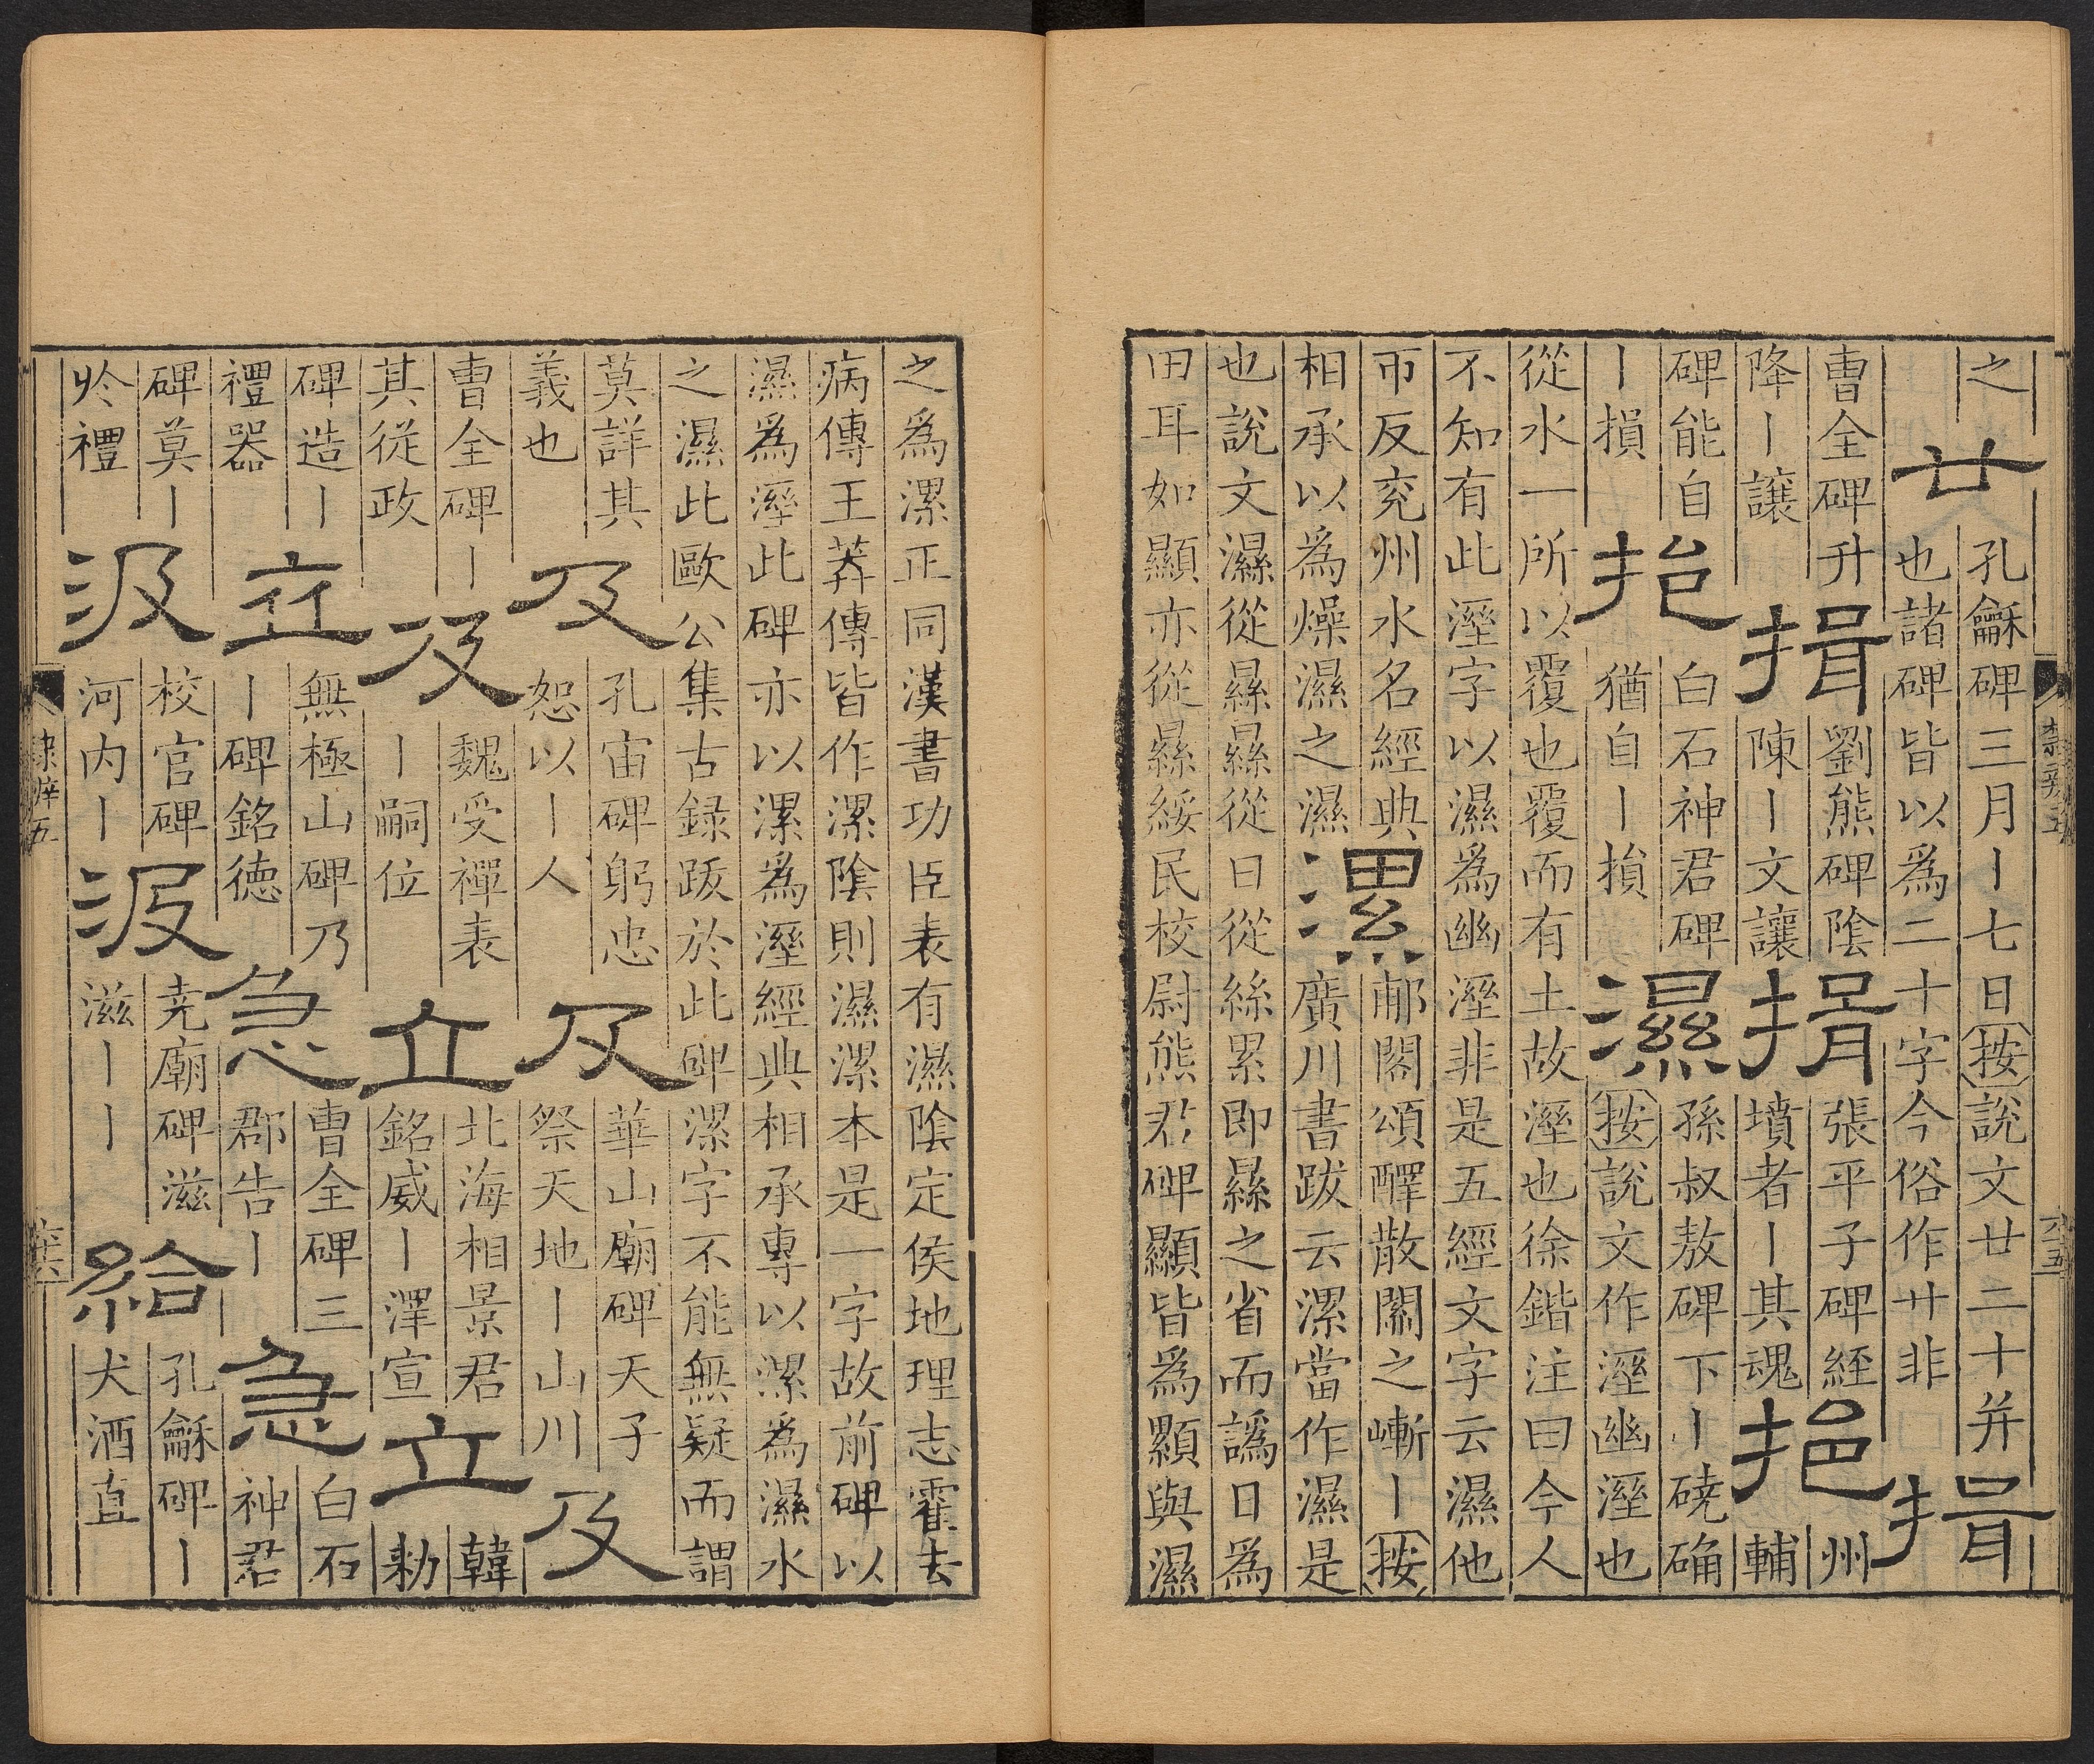 之
廿
孔龢碑三月丨七日按說文廿二十并
也諸碑皆以為二十字今俗作廿非
揖
曹全碑升
降丨讓
揖
劉熊碑陰
陳丨文讓
揖
張平子碑經
墳者丨其魂
挹
州
輔
碑能自
丨損
挹
白石神君碑
猶自丨損
濕
孫叔敖碑下丨磽确
按說文作溼幽溼也
從水一所以覆也覆而有土故溼也徐鍇注曰今人
不知有此溼字以濕為幽溼非是五經文字云濕他
帀反兗州水名經典
相承以為燥濕之濕
漯
郙閣頌醳散關之嶃丨按
廣川書跋云漯當作濕是
也說文濕從㬎㬎從日從絲累即㬎之省而譌日為
田耳如顯亦從㬎綏民校尉熊君碑顯皆為顥與濕
隸辨五
六五
之為漯正同漢書功臣表有濕陰定侯地理志霍去
病傳王莽傳皆作漯陰則濕漯本是一字故前碑以
濕為溼此碑亦以漯為溼經典相承專以漯為濕水
之濕此歐公集古録跋於此碑漯字不能無疑而謂
莫詳其
義也
及
孔宙碑躬忠
恕以丨人
及
華山廟碑天子
祭天地丨山川
及
曹全碑丨
其從政
及
魏受禪表
丨嗣位
立
北海相景君
銘威丨澤宣
立
韓
勑
碑造丨
禮器
立
無極山碑乃
丨碑銘德
急
曹全碑三
郡告丨
急
白石
神君
碑莫丨
於禮
汲
校官碑
河內丨
汲
堯廟碑滋
滋丨丨
給
孔龢碑丨
犬酒直
隸辨五
六六